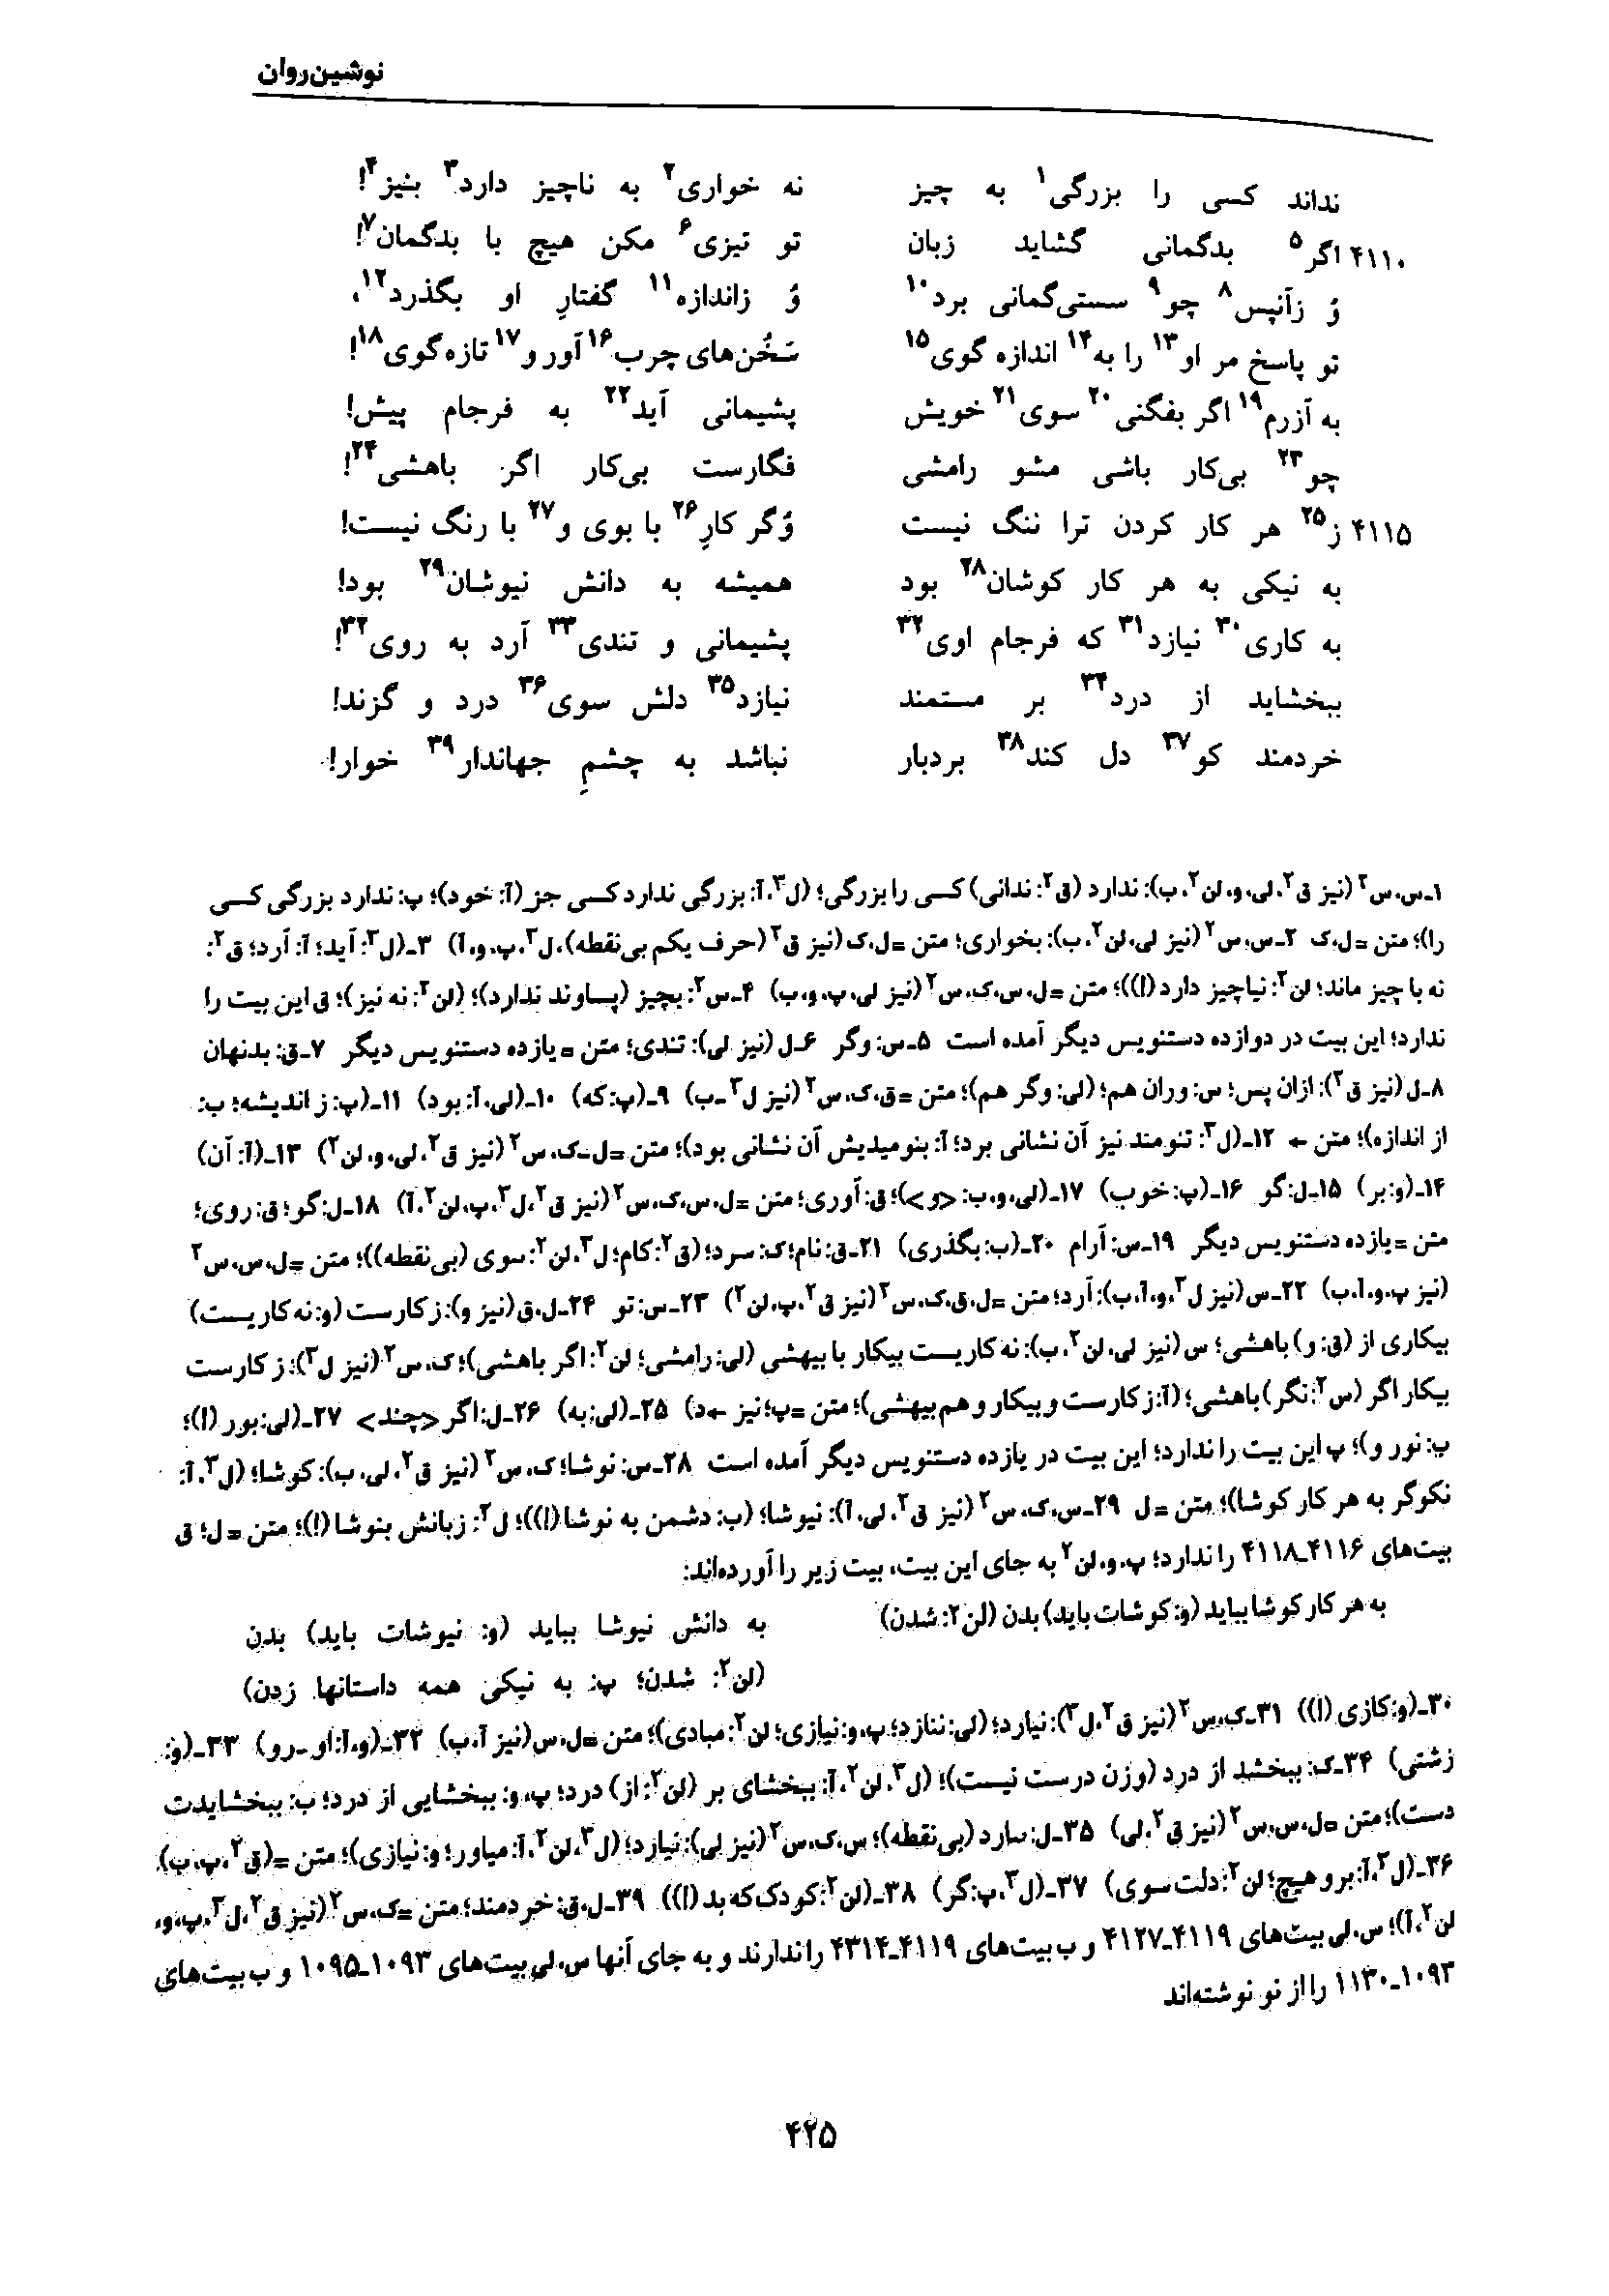 نوشین‌روان
نداند کسی را بزرگی۱ به چیز نه خواری۲ به ناچیز دارد۳ بنیز۴!
۴۱۱۰ اگر۵ بدگمانی گشاید زبان تو تیزی۶ مکن هیچ با بدگمان۷!
وُ زآنپس۸ چو۹ سستی‌گمانی برد۱۰ وُ زاندازه۱۱ گفتارِ او بگذرد۱۲،
تو پاسخ مر او۱۳ را به۱۴ اندازه گوی۱۵ سَخُن‌های چرب۱۶ آور و۱۷ تازه‌گوی۱۸!
به آزرم۱۹ اگر بفگنی۲۰ سوی۲۱ خویش پشیمانی آید۲۲ به فرجام پیش!
چو۲۳ بی‌کار باشی مشو رامشی فگارست بی‌کار اگر باهشی۲۴!
۴۱۱۵ ز۲۵ هر کار کردن ترا ننگ نیست وُگر کارِ۲۶ با بوی و۲۷ با رنگ نیست!
به نیکی به هر کار کوشان۲۸ بود همیشه به دانش نیوشان۲۹ بود!
به کاری۳۰ نیازد۳۱ که فرجام اوی۳۲ پشیمانی و تندی۳۳ آرد به روی۳۲!
ببخشاید از درد۳۴ بر مستمند نیازد۳۵ دلش سوی۳۶ درد و گزند!
خردمند کو۳۷ دل کند۳۸ بردبار نباشد به چشمِ جهاندار۳۹ خوار!
۱ـ س، س۲ (نیز ق۲، لی، و، لن۲، ب): ندارد (ق۲: ندانی) کسی را بزرگی؛ (ل۳، آ: بزرگی ندارد کسی جز (آ: خود)؛ پ: ندارد بزرگی کسی
را)؛ متن = ل، ک ۲ـ س، س۲ (نیز لی، لن۲، ب): بخواری؛ متن = ل، ک (نیز ق۲ (حرف یکم بی‌نقطه)، ل۳، پ، و، آ) ۳ـ (ل۳: آید؛ آ: آرد؛ ق۲:
نه با چیز ماند؛ لن۲: نیاچیز دارد (!))؛ متن = ل، س، ک، س۲ (نیز لی، پ، و، ب) ۴ـ س۲: بچیز (پساوند ندارد)؛ (لن۲: نه نیز)؛ ق این بیت را
ندارد؛ این بیت در دوازده دستنویس دیگر آمده است ۵ـ س: وگر ۶ـ ل (نیز لی): تندی؛ متن = یازده دستنویس دیگر ۷ـ ق: بدنهان
۸ـ ل (نیز ق۲): ازان پس؛ س: وران هم؛ (لی: وگر هم)؛ متن = ق، ک، س۲ (نیز ل۳ ـ ب) ۹ـ (پ: که) ۱۰ـ (لی، آ: بود) ۱۱ـ (پ: ز اندیشه؛ ب:
از اندازه)؛ متن ← ۱۲ـ (ل۳: تنومند نیز آن نشانی برد؛ آ: بنومیدیش آن نشانی بود)؛ متن = ل ـ ک، س۲ (نیز ق۲، لی، و، لن۲) ۱۳ـ (آ: آن)
۱۴ـ (و: بر) ۱۵ـ ل: گو ۱۶ـ (پ: خوب) ۱۷ـ (لی، و، ب: <و>)؛ ق: آوری؛ متن = ل، س، ک، س۲ (نیز ق۲، ل۳، پ، لن۲، آ) ۱۸ـ ل: گو؛ ق: روی؛
متن = یازده دستنویس دیگر ۱۹ـ س: آرام ۲۰ـ (ب: بگذری) ۲۱ـ ق: نام؛ ک: سرد؛ (ق۲: کام؛ ل۳، لن۲: سوی (بی‌نقطه))؛ متن = ل، س، س۲
(نیز پ، و، آ، ب) ۲۲ـ س (نیز ل۳، و، آ، ب): آرد؛ متن = ل، ق، ک، س۲ (نیز ق۲، پ، لن۲) ۲۳ـ س: تو ۲۴ـ ل، ق (نیز و): ز کارست (و: نه کاریست)
بیکاری از (ق: و) باهشی؛ س (نیز لی، لن۲، ب): نه کاریست بیکار با بیهشی (لی: رامشی؛ لن۲: اگر باهشی)؛ ک، س۲ (نیز ل۳): ز کارست
بیکار اگر (س۲: نگر) باهشی؛ (آ: ز کارست و بیکار و هم بیهشی)؛ متن = پ؛ نیز ← د) ۲۵ـ (لی: به) ۲۶ـ ل: اگر <چند> ۲۷ـ (لی: بور (!)؛
پ: نور و)؛ پ این بیت را ندارد؛ این بیت در یازده دستنویس دیگر آمده است ۲۸ـ س: نوشا؛ ک، س۲ (نیز ق۲، لی، ب): کوشا؛ (ل۳، آ:
نکوگر به هر کار کوشا)؛ متن = ل ۲۹ـ س، ک، س۲ (نیز ق۲، لی، آ): نیوشا؛ (ب: دشمن به نوشا (!))؛ ل۳: زبانش بنوشا (!)؛ متن = ل؛ ق
بیت‌های ۴۱۱۶ـ۴۱۱۸ را ندارد؛ پ، و، لن۲ به جای این بیت، بیت زیر را آورده‌اند:
به هر کار کوشا بباید (و: کوشات باید) بدن (لن۲: شدن) به دانش نیوشا بباید (و: نیوشات باید) بدن
(لن۲: شدن؛ پ: به نیکی همه داستانها زدن)
۳۰ـ (و: کازی (!)) ۳۱ـ ک، س۲ (نیز ق۲، ل۳): نیارد؛ (لی: ننازد؛ پ، و: نیازی؛ لن۲: مبادی)؛ متن = ل، س (نیز آ، ب) ۳۲ـ (و، آ: او ـ رو) ۳۳ـ (و:
زشتی) ۳۴ـ ک: ببخشد از درد (وزن درست نیست)؛ (ل۳، لن۲، آ: ببخشای بر (لن۲: از) درد؛ پ، و: ببخشایی از درد؛ ب: ببخشایدت
دست)؛ متن = ل، س، س۲ (نیز ق۲، لی) ۳۵ـ ل: سارد (بی‌نقطه)؛ س، ک، س۲ (نیز لی): نیارد؛ (ل۳، لن۲، آ: میاور؛ و: نیازی)؛ متن = (ق۲، پ، ب)
۳۶ـ (ل۳، آ: برو هیچ؛ لن۲: دلت سوی) ۳۷ـ (ل۳، پ: گر) ۳۸ـ (لن۲: کودک که بد (!)) ۳۹ـ ل، ق: خردمند؛ متن = ک، س۲ (نیز ق۲، ل۳، پ، و،
لن۲، آ)؛ س، لی بیت‌های ۴۱۱۹ـ۴۱۲۷ و ب بیت‌های ۴۱۱۹ـ۴۳۱۴ را ندارند و به جای آنها س، لی بیت‌های ۱۰۹۳ـ۱۰۹۵ و ب بیت‌های
۱۰۹۳ـ۱۱۳۰ را از نو نوشته‌اند
۴۲۵